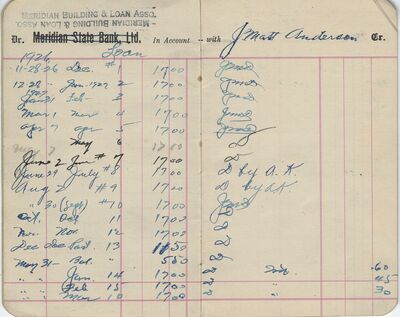 MERIDIAN BUILDING & LOAN ASSO.
MERIDIAN BUILDING & LOAN ASSO.
Dr. Meridian State Bank, Ltd. In Account with J Matt Anderson Cr.
1926 Loan
11-28-26 Dec. #1 17 00
12-28- " Jan-1927 2 17 00
1927
Jan 31 Feb - 3 17 00
Mar 1 Mar 4 17 00
Apr 7 apr 5 17 00
May 7 May 6 17 00
June 2 Jun #7 17 00
June 29 July #8 17 00 by A. K.
Aug 2 #9 17 00 by AK
" 30 (Sept) #10 17 00
Oct. Oct 11 17 00
Nov. Nov. 12 17 00
Dec Dec Part. 13 11 50
May 31 - Bal. " 5 50 .60
" " Jan. 14 17 00 45
" " Feb 15 17 00 30
" " Mar 17 00